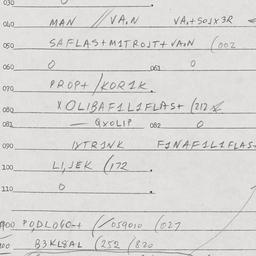 030
040 MAN // VA,N VA,+SOJX3R
050 SAFLAS+M1TROJT+VA,N (002
060 0 061 0
070 PROP+ /KOR1K.
080 XOLIBAF1L1FLAS+ (212
081 — GXOLIP 082 0
090 IXTR1NK F1NAF1L1FLAS+
100 LI,JEK (172
110 0
900 (/059010 (027
B3KL8AL (252 (820